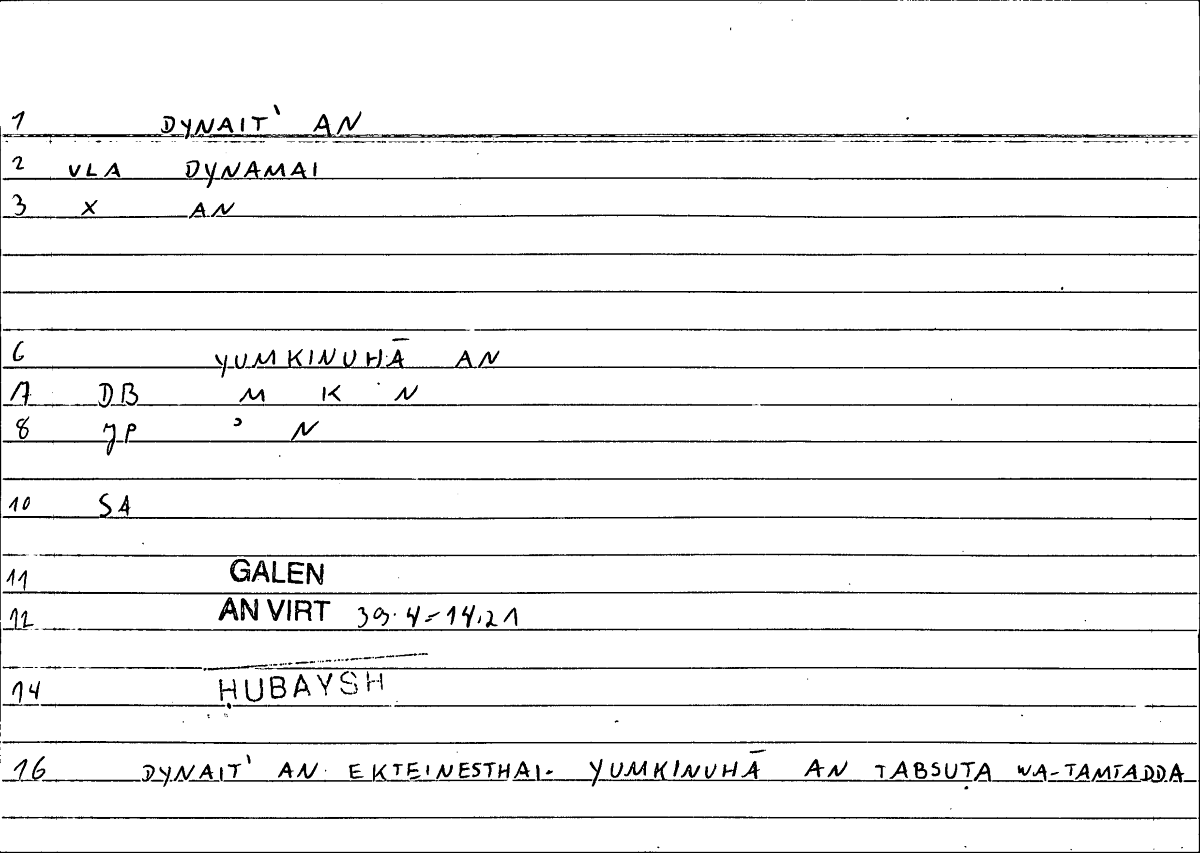 1 DYNAIT' AN
2 VLA DYNAMAI
3 X AN
6 YUMKINUHĀ AN
7 DB M K N
8 JP ʾ N
10 SA
11 GALEN
12 AN VIRT 39.4=14.21
14 ḤUBAYSH
16 DYNAIT' AN EKTEINESTHAI. YUMKINUHĀ AN TABSUṬA WA-TAMTADDA